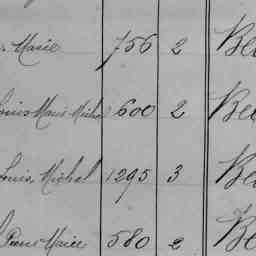 Marie 756 2 Be
Louis Marie Michel 600 2 Be
Louis Michel 1295 3 Be
Pierre Marie 580 2 Be